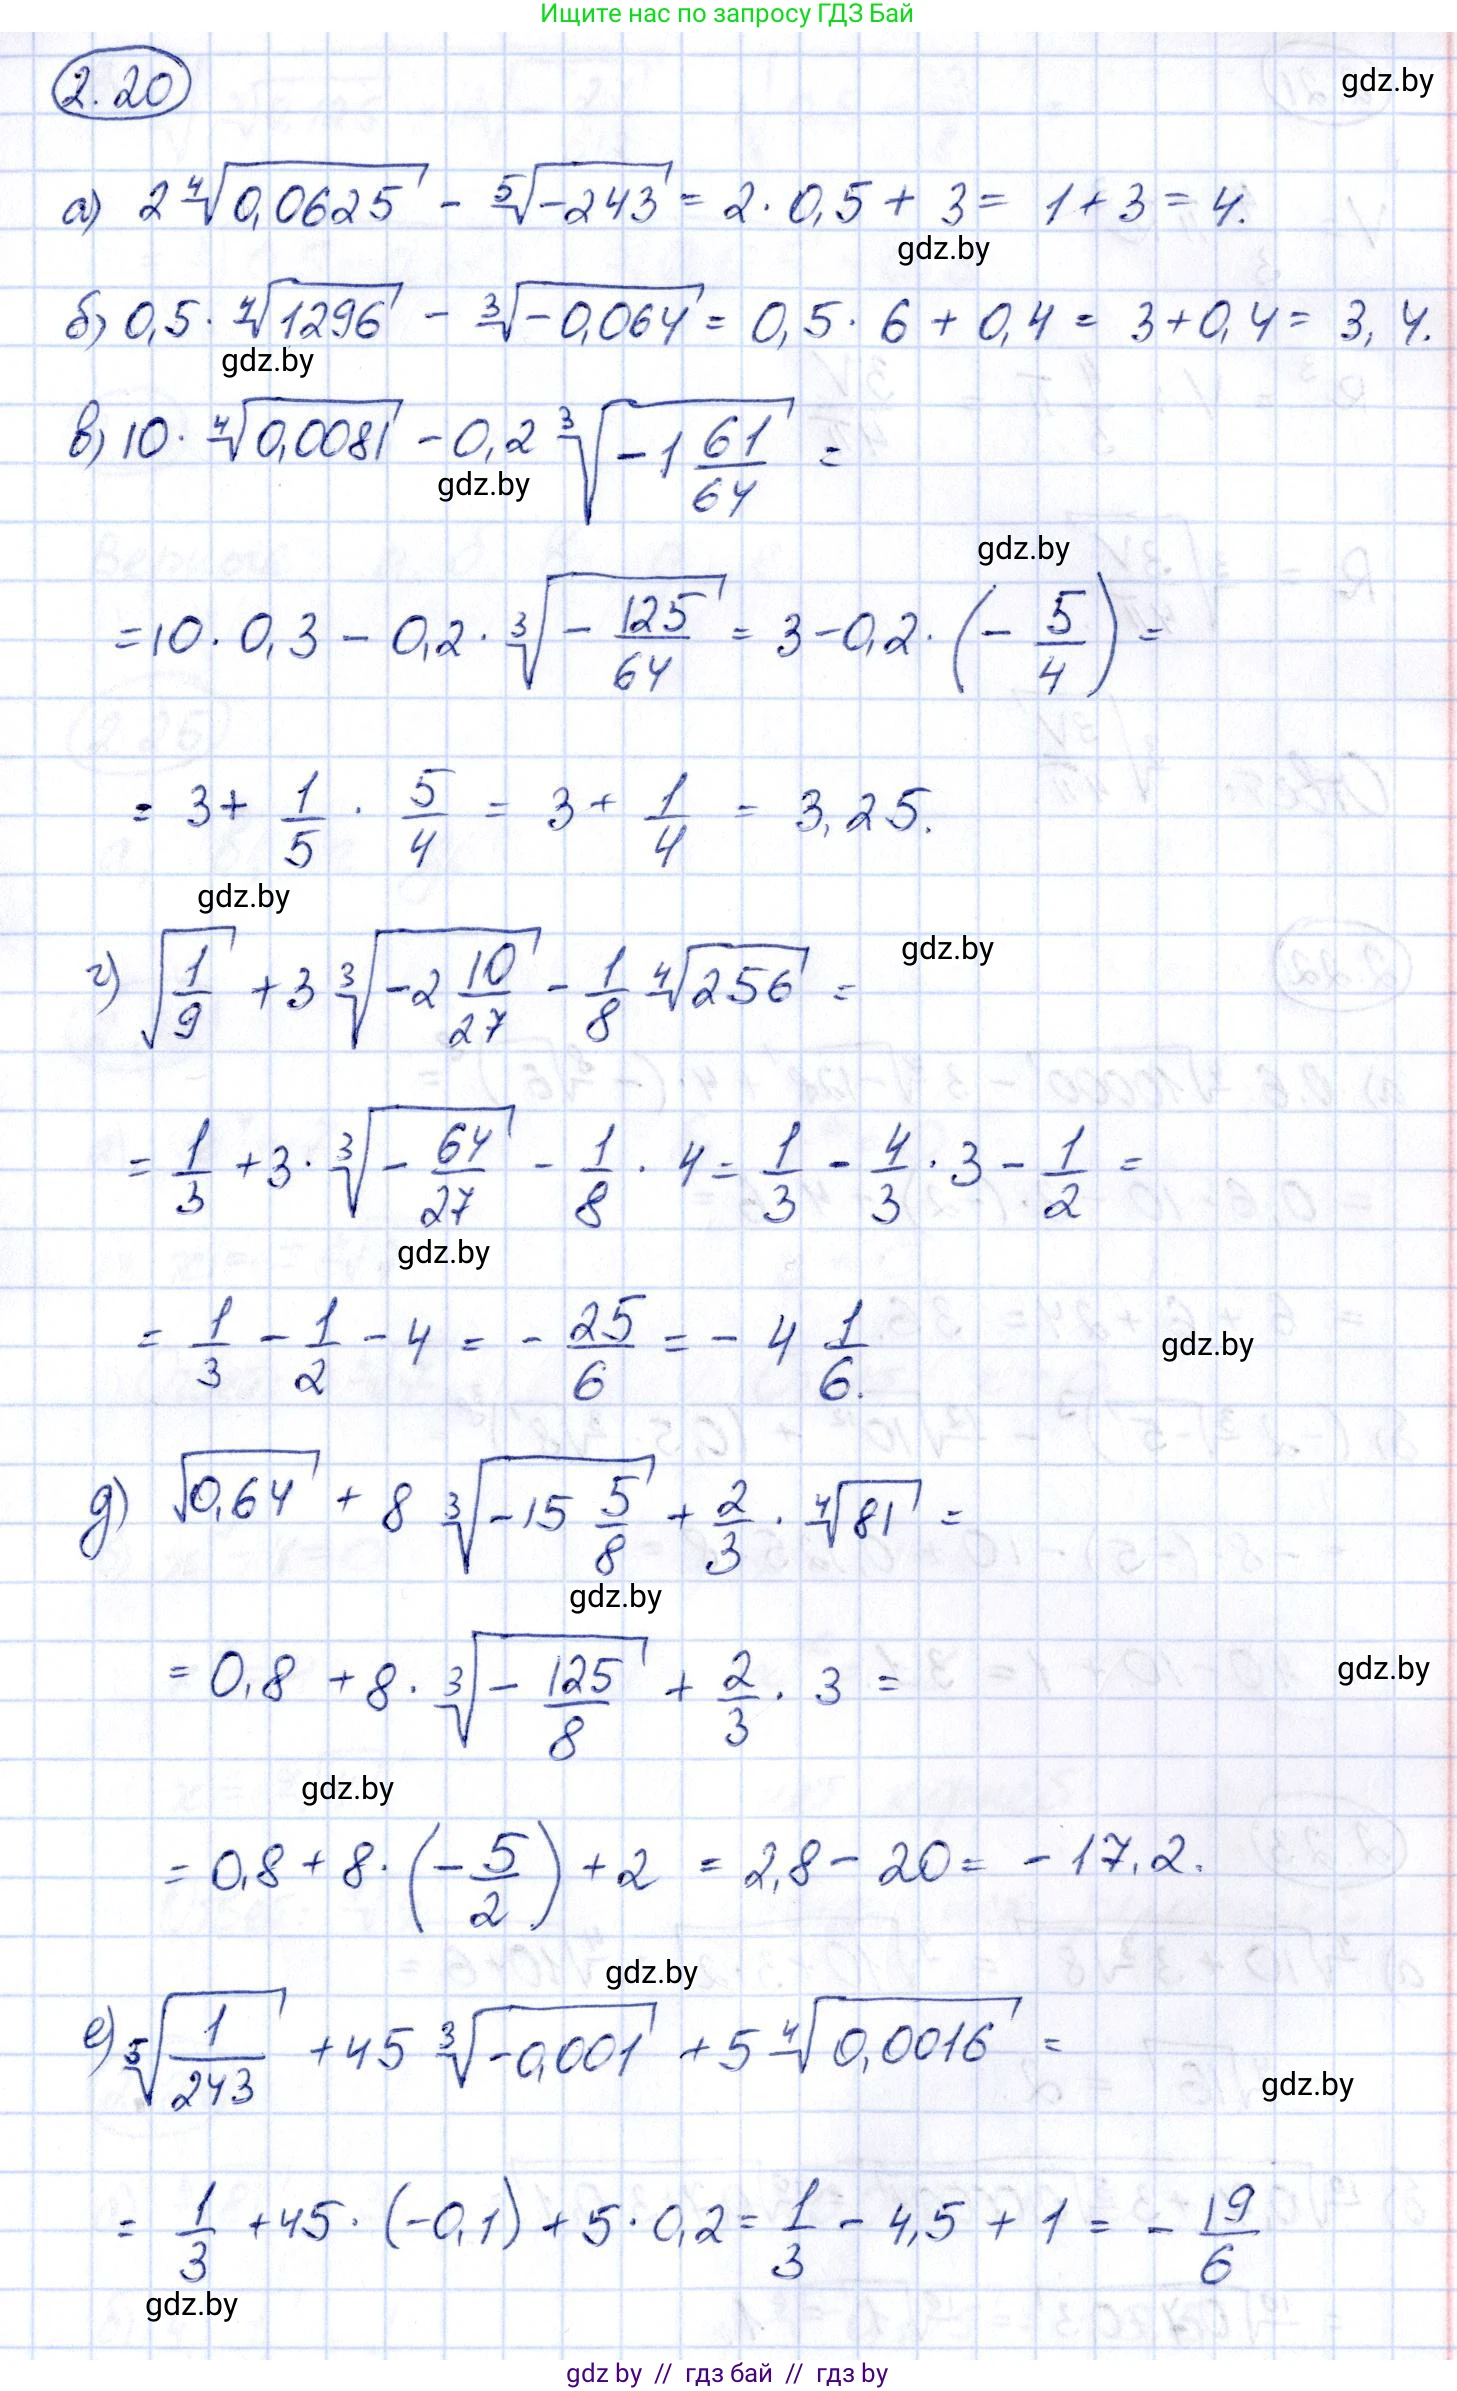 Ищите нас по запросу ГДЗ Бай
2.20
gdz.by
а) 2∜0,0625 - ⁵√-243 = 2·0,5 + 3 = 1+3 = 4.
gdz.by
б) 0,5·∜1296 - ∛-0,064 = 0,5·6 + 0,4 = 3+0,4 = 3,4.
gdz.by
в) 10·∜0,0081 - 0,2 ∛(-1 61/64) =
gdz.by
gdz.by
= 10·0,3 - 0,2·∛(-125/64) = 3-0,2·(-5/4) =
= 3+ 1/5 · 5/4 = 3+ 1/4 = 3,25.
gdz.by
г) √(1/9) + 3 ∛(-2 10/27) - 1/8 ∜256 =
gdz.by
= 1/3 + 3·∛(-64/27) - 1/8 · 4 = 1/3 - 4/3 · 3 - 1/2 =
gdz.by
= 1/3 - 1/2 - 4 = - 25/6 = - 4 1/6.
gdz.by
д) √0,64 + 8 ∛(-15 5/8) + 2/3 · ∜81 =
gdz.by
= 0,8 + 8·∛(-125/8) + 2/3 · 3 =
gdz.by
gdz.by
= 0,8 + 8·(-5/2) + 2 = 2,8 - 20 = - 17,2.
gdz.by
е) ⁵√(1/243) + 45 ∛-0,001 + 5 ∜0,0016 =
gdz.by
= 1/3 + 45·(-0,1) + 5·0,2 = 1/3 - 4,5 + 1 = - 19/6
gdz.by
gdz by // гдз бай // гдз by